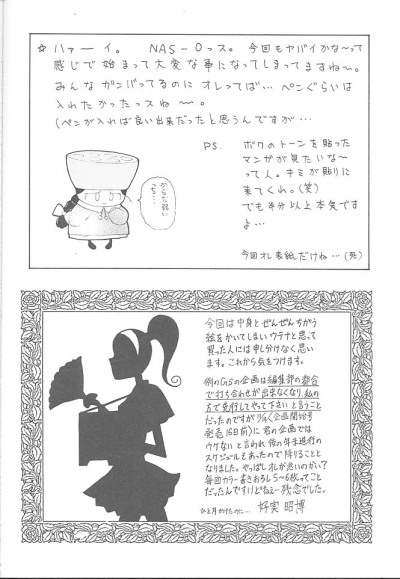 ☆ハァーイ。 NAS-Oっス。今回もヤバイかな〜って
感じで始まって大変な事になってしまってますね〜。
みんなガンバってるのにオレってば…ペンぐらいは
入れたかったっスね〜。
(ペンが入れば良い出来だったと思うんですが…
P.S. ボクのトーンを貼った
マンガが見たいな〜
って人。キミが貼りに
来てくれ。(笑)
でも半分以上本気です
よ…
今回オレ表紙だけね…(死)
からだ弱い
今回は中身とぜんぜんちがう
絵をかいてしまいウテナと思って
買った人には申し分けなく思い
ます。これから気をつけます。
例のGSの企画は編集部の都合
で打ち合わせが出来なくなり、私の
方で発行してやって下さいと言うこと
だったのですが
発売16日前)に君の企画では
ウケないと言われ他の年末進行の
スケジュールもあったので降りることと
なりました。やっぱしオレが悪いのかい?
毎回カラー書きおろし5〜6枚ってこと
だったんですけどねぇ…残念でした。
ひと月かけたのに… 好実昭博